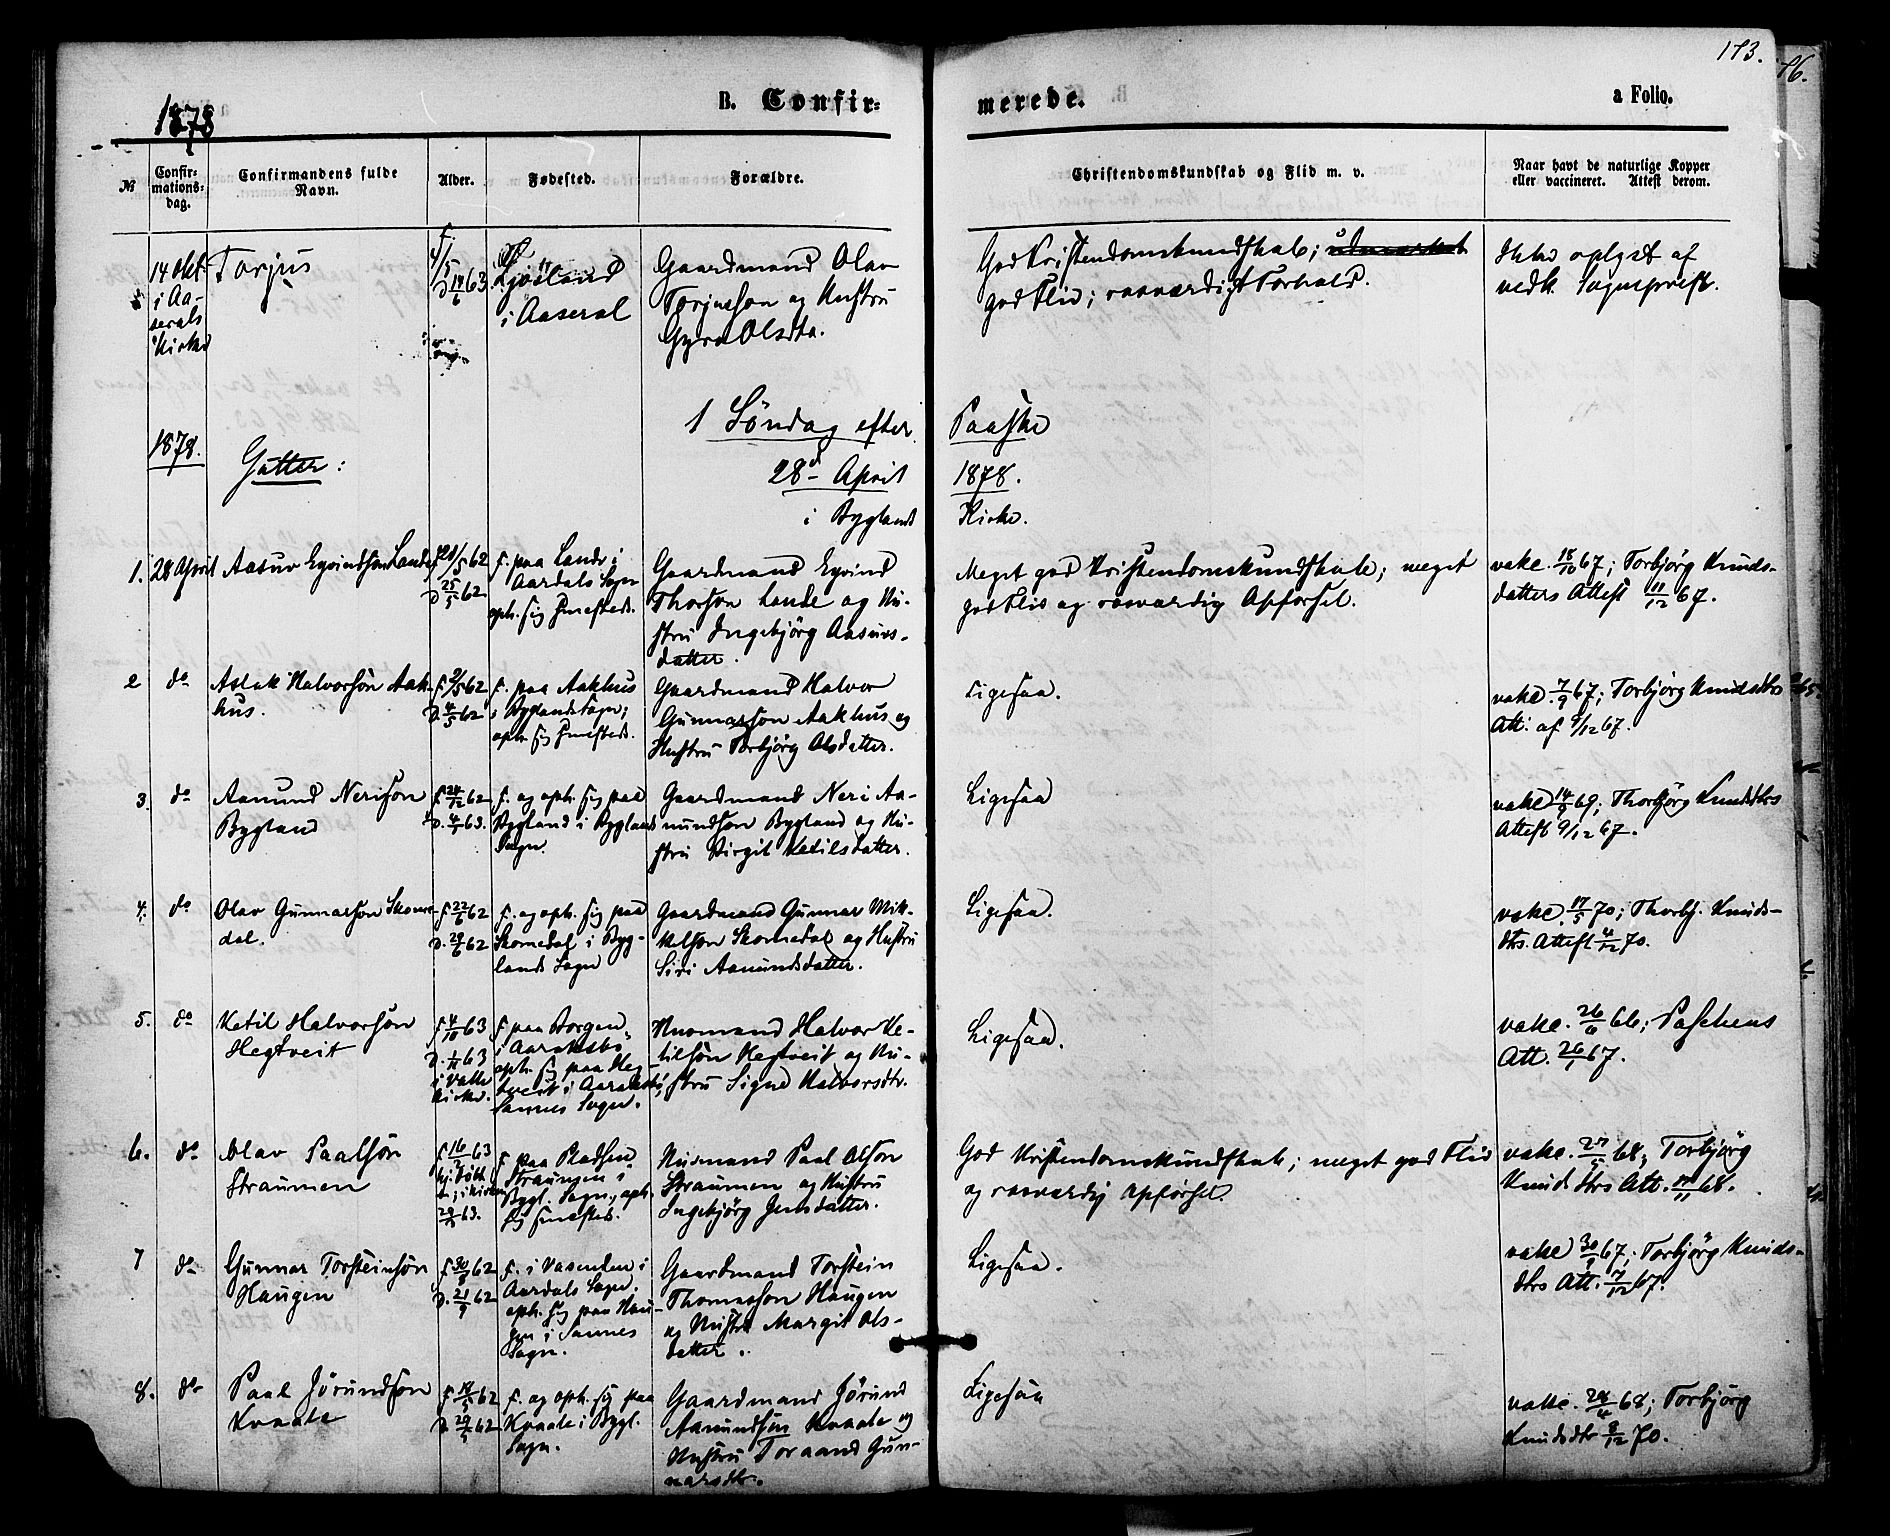 173.
76.
1878
B. Confir-
merede.
a Folio.
№
Confir-
mations-
dag.
Confirmandens fulde
Navn.
Alder.
Fødested.
Forældre.
Christendomskundskab og Flid m. v.
Naar havt de naturlige Kopper
eller vaccineret. Attest derom.
14 Okt.
i Aa-
serals
Kirke
Torjus
f.
4/5
D 14/6 63
Ljosland
i Aaseral
Gaardmand Olav
Torjusson og Hustru
Gyro Olsdtr.
God Kristendomskundskab;
god Flid; rosværdigt Forhold.
Ikke oplyst af
vedk. Sogneprest.
1878.
Gutter:
1 Söndag efter
Paaske
28d April
1878.
i Bygland
Kirke.
1.
28 April
Aasuv Eyvindson Lande
f. 21/5 62
D 25/5 62
f. paa Lande i
Aardals Sogn
oph. sig smstds.
Gaardmand Eyvind
Thorson Lande og Hu-
stru Ingebjörg Aasuvs-
datter.
Meget god Kristendomskundskab; meget
god Flid og rosværdig Opförsel.
vakc. 18/10 67; Torbjörg Knuds-
datters Attest 11/12 67.
2
do
Aslak Halvorsön Aak-
hus.
f. 2/5 62
D. 4/5 62
f. paa Aakhus
i Byglands Sogn;
oph. sig smstds.
Gaardmand Halvor
Gunnarson Aakhus og
Hustru Torbjörg Olsdatter.
Ligesaa.
vakc. 7/9 67; Torbjörg Knudsdtrs
Att. af 9/12 67.
3.
do
Aanund Nerison
Bygland
f. 24/12 62
D. 4/1 63.
f. og oph. sig paa
Bygland i Byglands
Sogn.
Gaardmand Neri Aa-
nundson Bygland og Hu-
stru Birgit Ketilsdatter.
Ligesaa
vakc 14/9 69; Thorbjörg Knudsdtrs
Attest 9/12 67.
4.
do
Olav Gunnarson Skome-
dal.
f. 22/6 62
D. 29/6 62
f. og oph. sig paa
Skomedal i Byg-
lands Sogn
Gaardmand Gunnar Mik-
kelson Skomedal og Hustru
Siri Aanundsdatter.
Ligesaa.
vakc. 17/5 70; Thorbj. Knuds-
dtrs. Attest 4/12 70.
5.
do
Ketil Halvorsön
Hegtveit
f. 4/10 63
D. 1/11 63
i Valle
Kirke.
f. paa Borgen
i Aaraksbö,
oph. sig paa Heg-
tveit i Aaraksbö,
Sannes Sogn.
Husmand Halvor Ke-
tilsön Hegtveit og Hu-
stru Signe Halvorsdtr.
Ligesaa.
vakc. 26/6 66; Paschens
Att. 26/1 67.
6.
do
Olav Paalsön
Straumen
hj. döbt
i Kirken
63.
f. paa Pladsen
Straumen i
Bygl. Sogn, oph.
sig smsteds.
Husmand Paal Olson
Straumen og Hustru
Ingebjörg Jensdatter.
God Kristendomskundskab; meget god Flid
og rosværdig Opförsel.
vakc. 27/5 68; Torbjörg
Knudsdtrs Att. 17/11 68.
7
do
Gunnar Torsteinsön
Haugen
f. 30/8 62
D. 21/9 62
f. i Vasenden i
Aardals Sogn;
oph. sig paa Hau-
gen i Sannes
Sogn.
Gaardmand Torstein
Thomasson Haugen
og Hustru Margit Ols-
datter.
Ligesaa.
vakc 30/9 67; Torbjörg Knuds-
dtrs Att. 7/12 67.
8.
do
Paal Jörundson
Kvaale
f. 18/5 62
D. 29/5 62
f. og oph. sig paa
Kvaale i Bygl.
Sogn.
Gaardmand Jörund
Aanundson Kvaale og
Hustru Toraand Gun-
narsdtr.
Ligesaa
vakc. 24/4 68; Torbjörg
Knudsdtr 8/12 70.